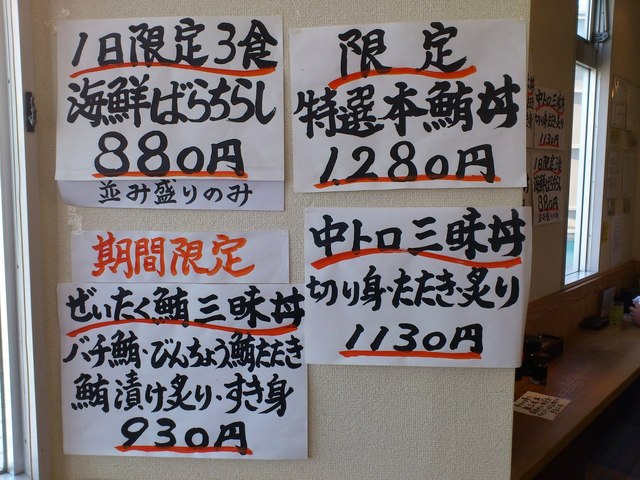 1日限定3食
海鮮ばらちらし
880円
並み盛りのみ
限定
特選本鮪丼
1,280円
期間限定
ぜいたく鮪三昧丼
バチ鮪・びんちょう鮪たたき
鮪漬け炙り・すき身
930円
中トロ三昧丼
切り身・たたき・炙り
1130円
中トロ三昧丼
切り身・たたき・炙り
1130円
1日限定3食
海鮮ばらちらし
880円
並み盛りのみ